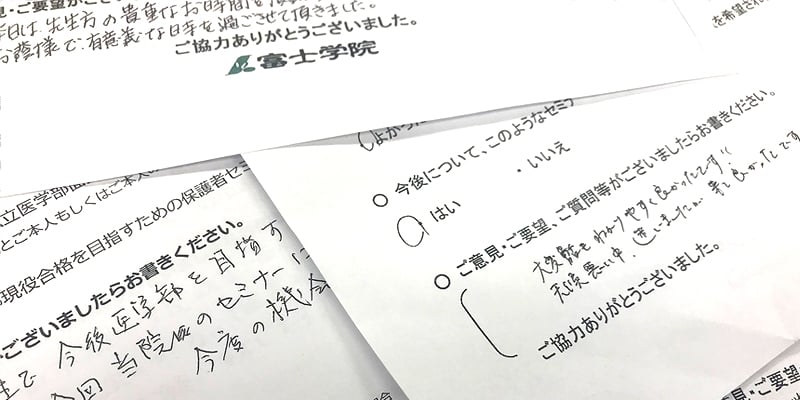 見・ご要望がござ
昨日は、先生方の貴重なお時間を
お蔭様で、有意義な日々を過ごさせて頂きました。
ご協力ありがとうございました。
富士学院
を希望され
よかった
今後について、このようなセミナ
はい
・いいえ
ご意見・ご要望、ご質問等がございましたらお書きください。
大変わかりやすく良かったです!!
天候悪い中、迷いましたが来て良かったです
ご協力ありがとうございました。
立医学部
とご本人もしくはご本人の
現役合格を目指すための保護者セミ
ございましたらお書きください。
今後医学部を目指す
今回当院のセミナーに
今度の機会
・ご要望